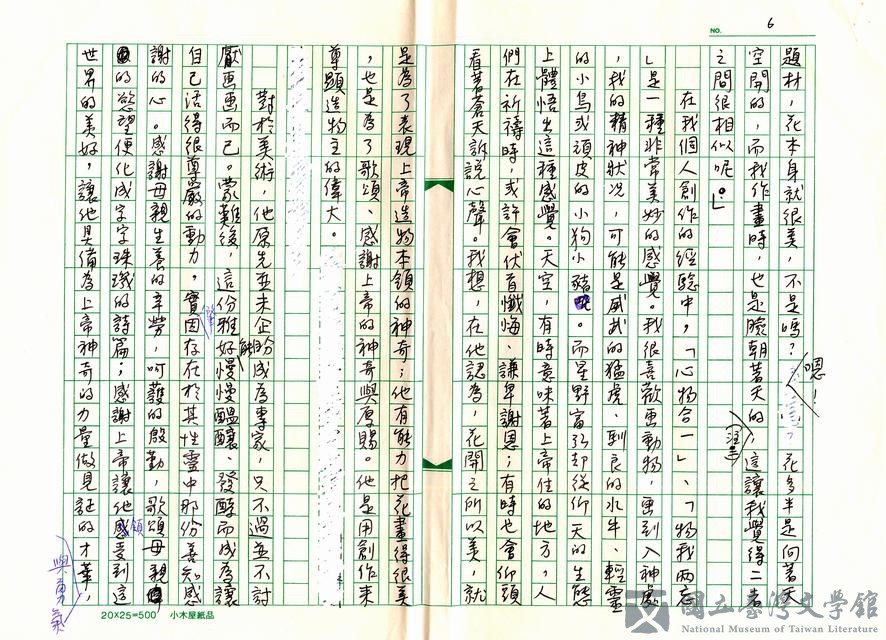 NO. 6
題材，花本身就很美，不是嗎？嗯！花多半是向著天
空開的，而我作畫時，也是臉朝著天的，這讓我覺得二者
之間很相似呢。」
在我個人創作的經驗中，「心物合一」、「物我兩忘
」是一種非常美妙的感覺。我很喜歡畫動物，畫到入神處
，我的精神狀況，可能是威武的猛虎、馴良的水牛、輕靈
的小鳥或頑皮的小狗小豬。而星野富弘卻從仰天的生態
上體悟出這種感覺。天空，有時意味著上帝住的地方，人
們在祈禱時，或許會伏首懺悔、謙卑謝恩；有時也會仰頭
看著蒼天訴說心聲。我想，在他認為，花開之所以美，就
是為了表現上帝造物本領的神奇；他有能力把花畫得很美
，也是為了歌頌、感謝上帝的神奇與厚賜。他是用創作來
尊顯造物主的偉大。
對於美術，他原先並未企盼能成為專家，只不過並不討
厭畫畫而已。蒙難後，這份雅好慢慢醞釀、發酵而成為讓
自己活得很尊嚴的動力。實因存在於其性靈中那份善知感
謝的心。感謝母親生養的辛勞，呵護的殷勤，歌頌母親
的慾望便化成字字珠璣的詩篇；感謝上帝讓他領受到這
世界的美好，讓他具備為上帝神奇的力量做見証的才華，
與勇氣
20×25=500 小木屋紙品
國立臺灣文學館
National Museum of Taiwan Literature